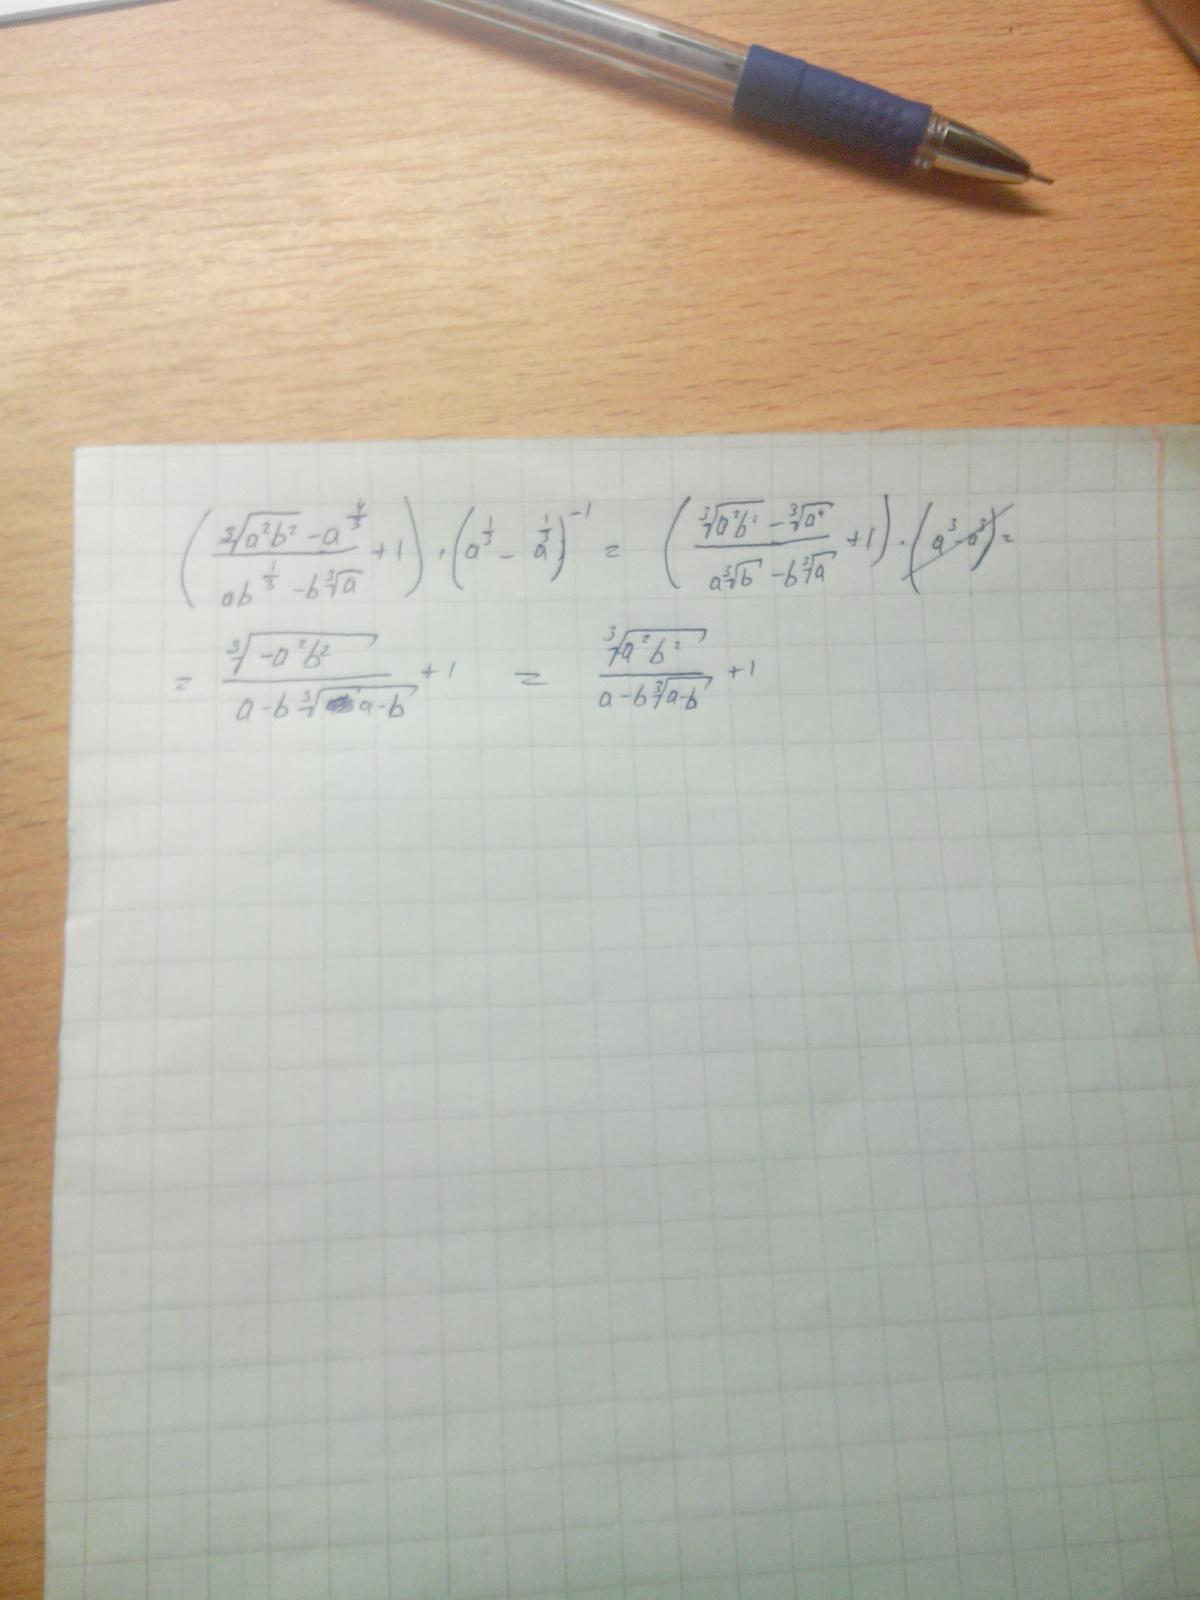 (∛(a²b²) - a^(4/3) / ab^(1/3) - b∛a + 1) · (a^(1/3) - a^(1/3))^(-1) = (∛(a²b²) - ∛(a⁴) / a∛b - b∛a + 1) · (a³ - a³) =
= ∛(-a²b²) / a - b∛(a-b) + 1 = ∛(a²b²) / a - b∛(a-b) + 1